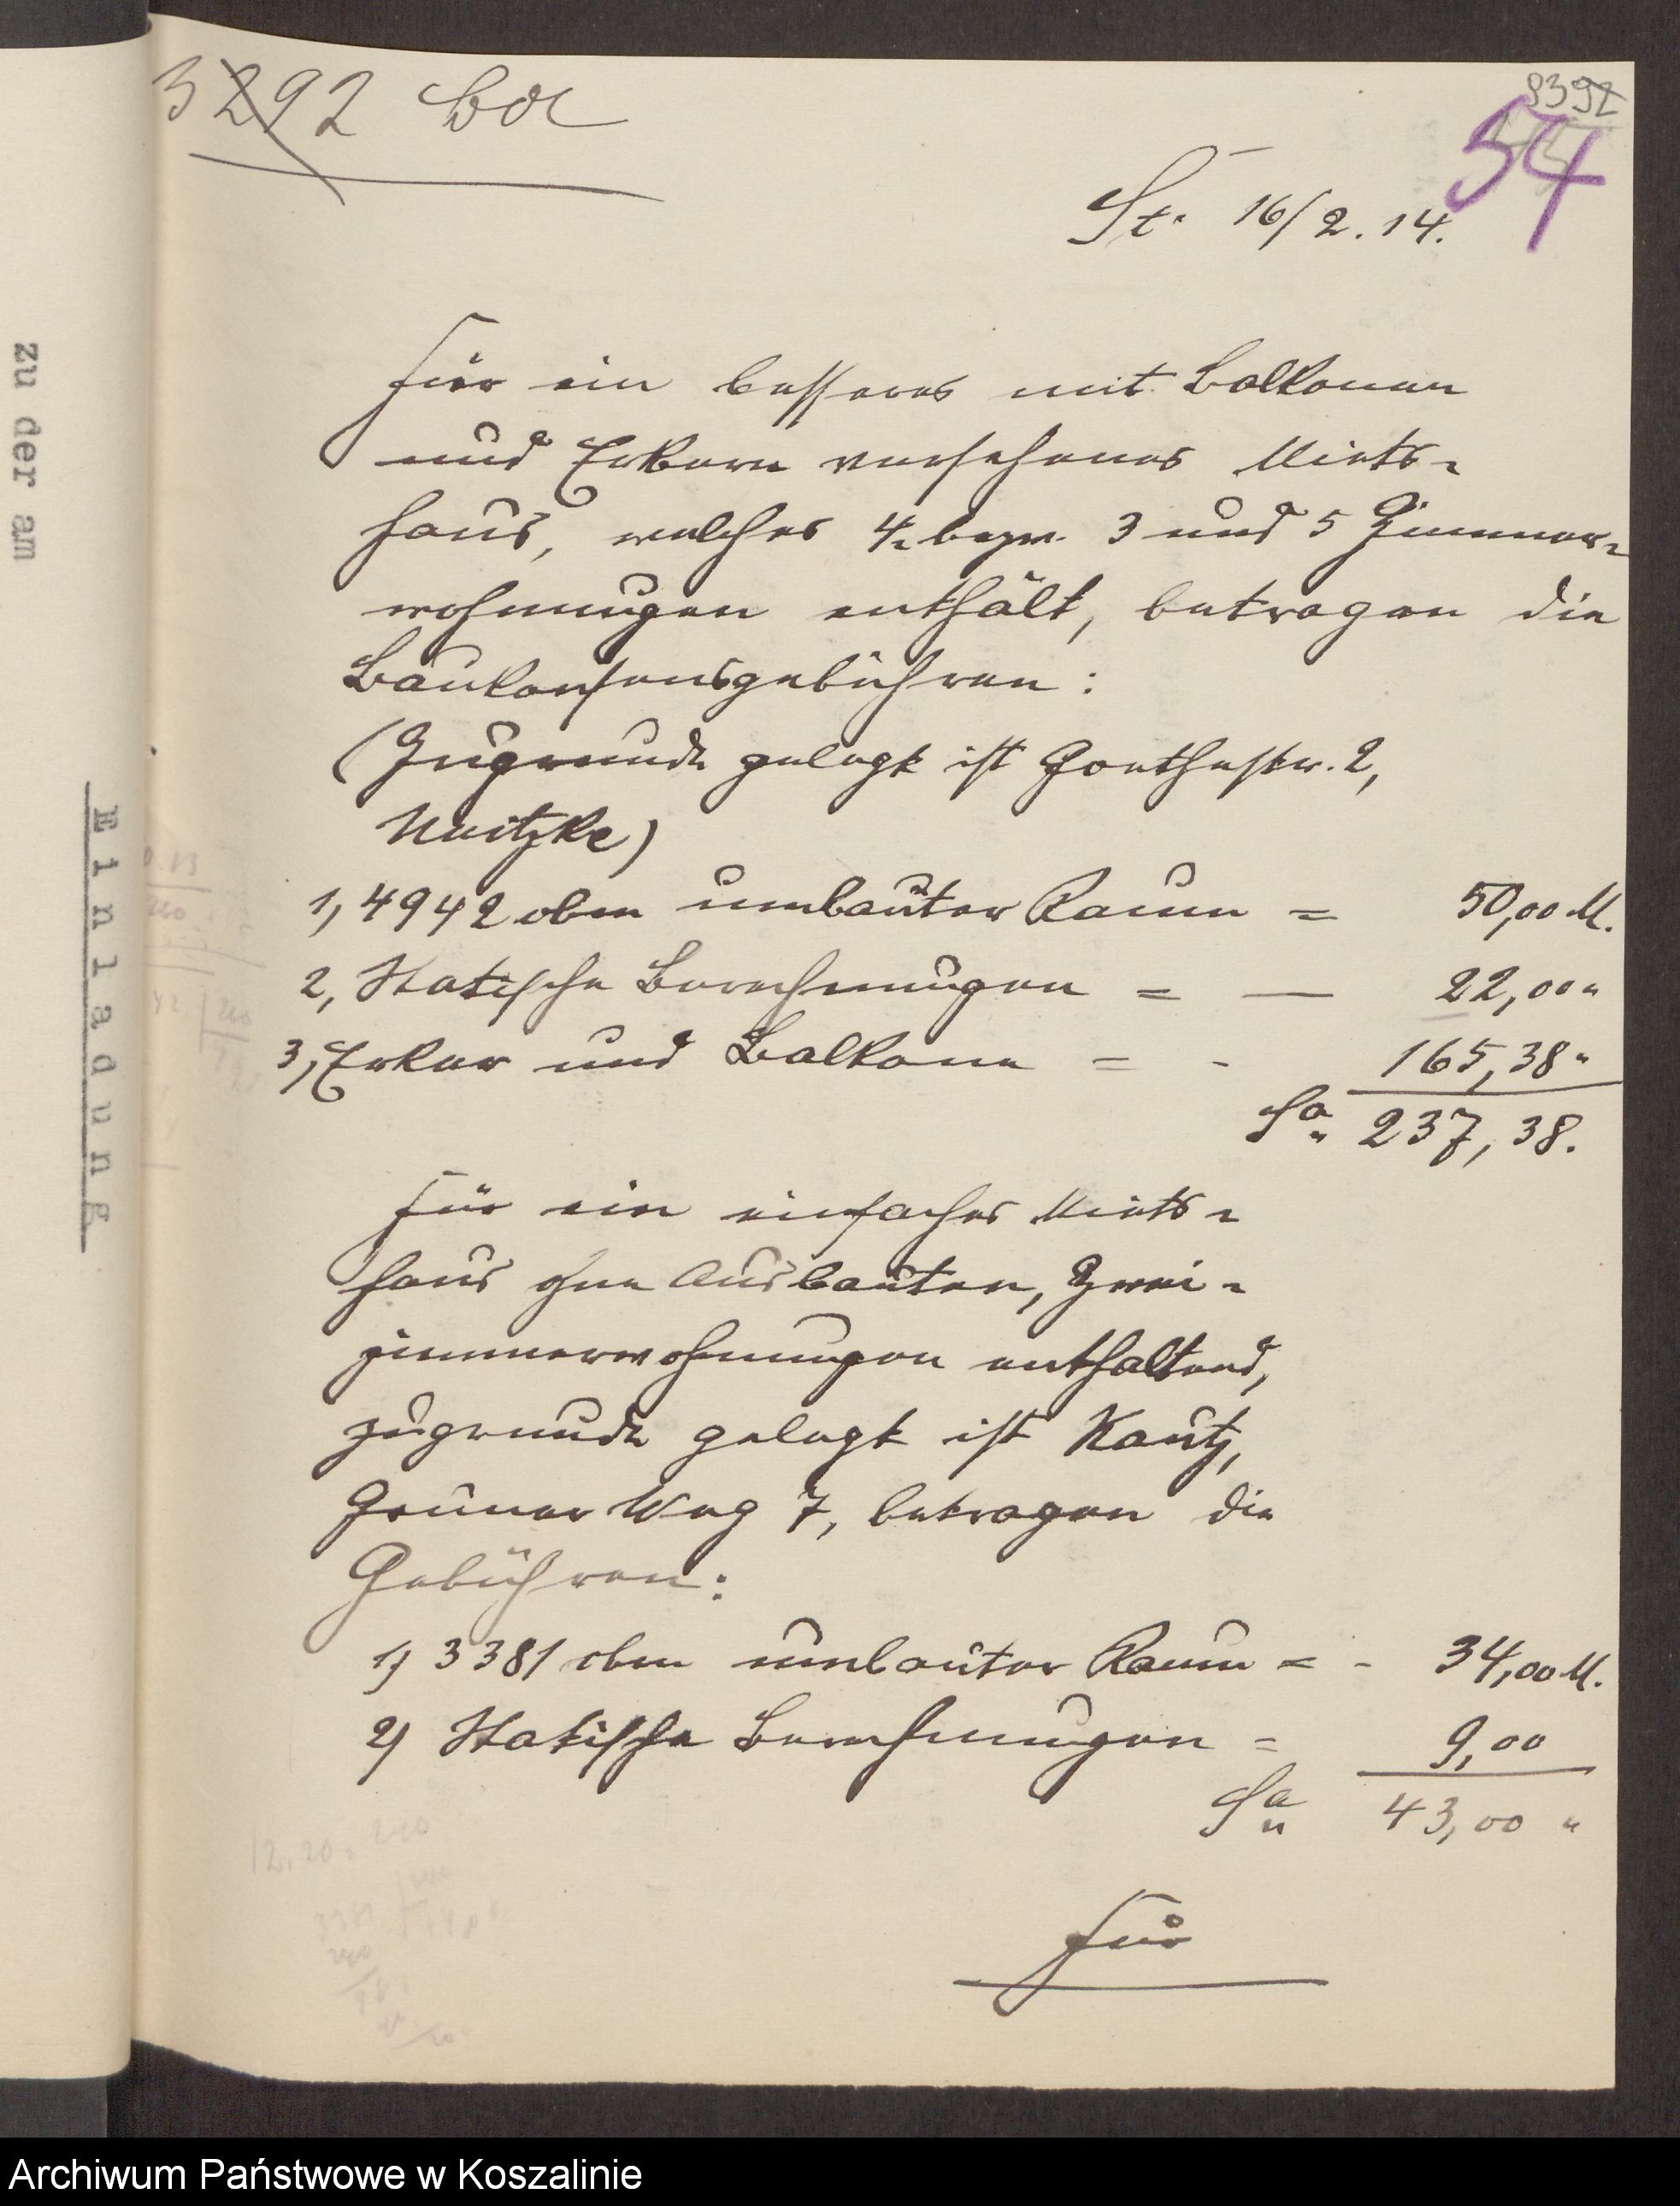 3292
8392
54
St. 16/2.14.
Für ein besseres mit Balkonen
und Erkern versehenes Miets-
haus, welches 4- bezw. 3 und 5 Zimmer-
wohnungen enthält, betragen die
Baukonsensgebühren:
(Zugrunde gelegt ist Goethestr. 2,
1, 4942 cbm umbauter Raum = 50,00 M.
2, Statische Berechnungen = — 22,00 "
3, Erker und Balkone = - 165,38 "
Sa. 237,38.
Für ein einfaches Miets-
haus ohne Ausbauten, Zwei-
zimmerwohnungen enthaltend,
zugrunde gelegt ist Kautz,
Grüner Weg 7, betragen die
Gebühren:
1) 3381 cbm umbauter Raum = - 34,00 M.
2) Statische Berechnungen = 9,00
Sa 43,00 "
Für
zu der am
Einladung
Archiwum Państwowe w Koszalinie